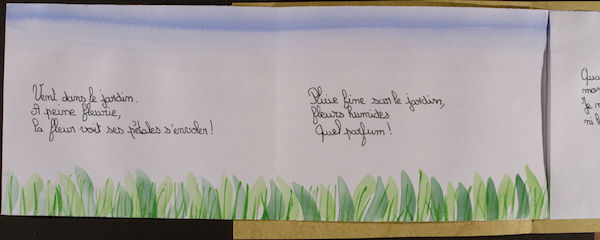 Vent dans le jardin.
A peine fleurie,
La fleur voit ses pétales s'envoler!
Pluie fine sur le jardin,
fleurs humides
Quel parfum!
Qua